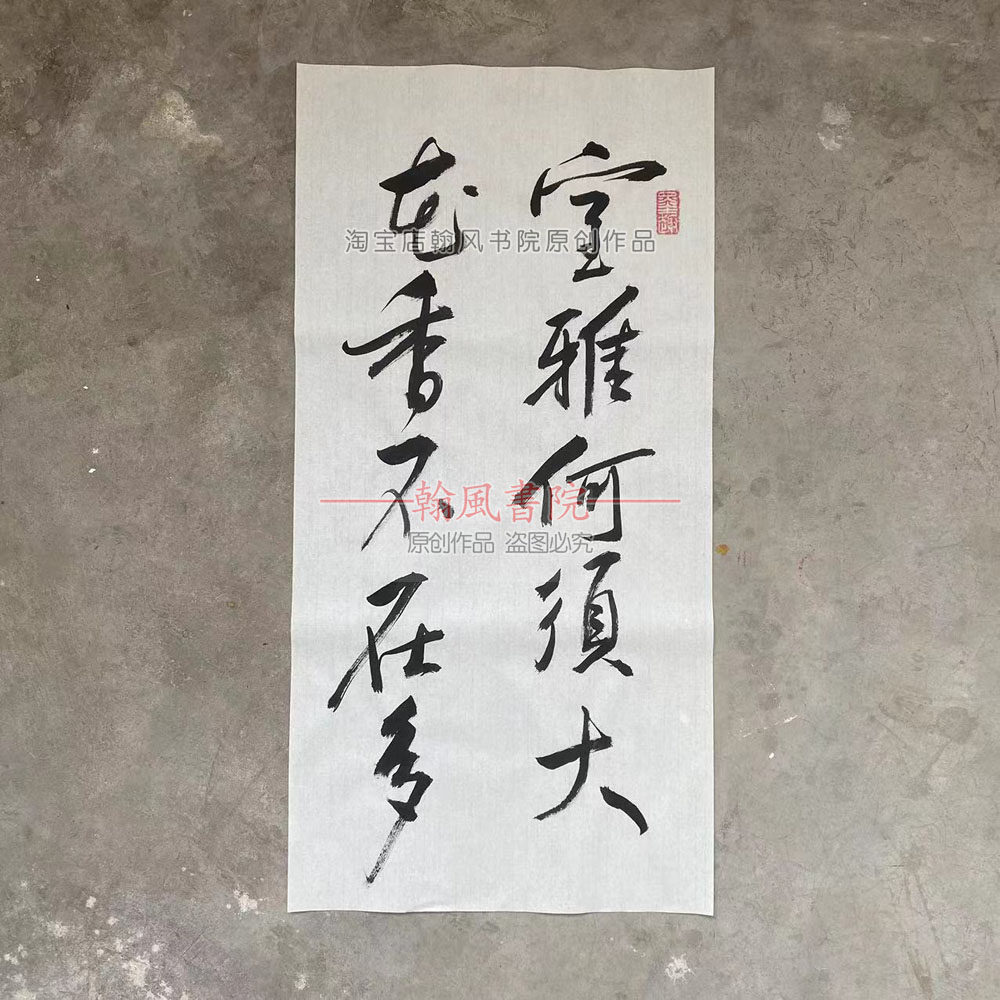 室雅何須大
花香不在多
淘宝店翰风书院原创作品
翰風書院
原创作品 盗图必究